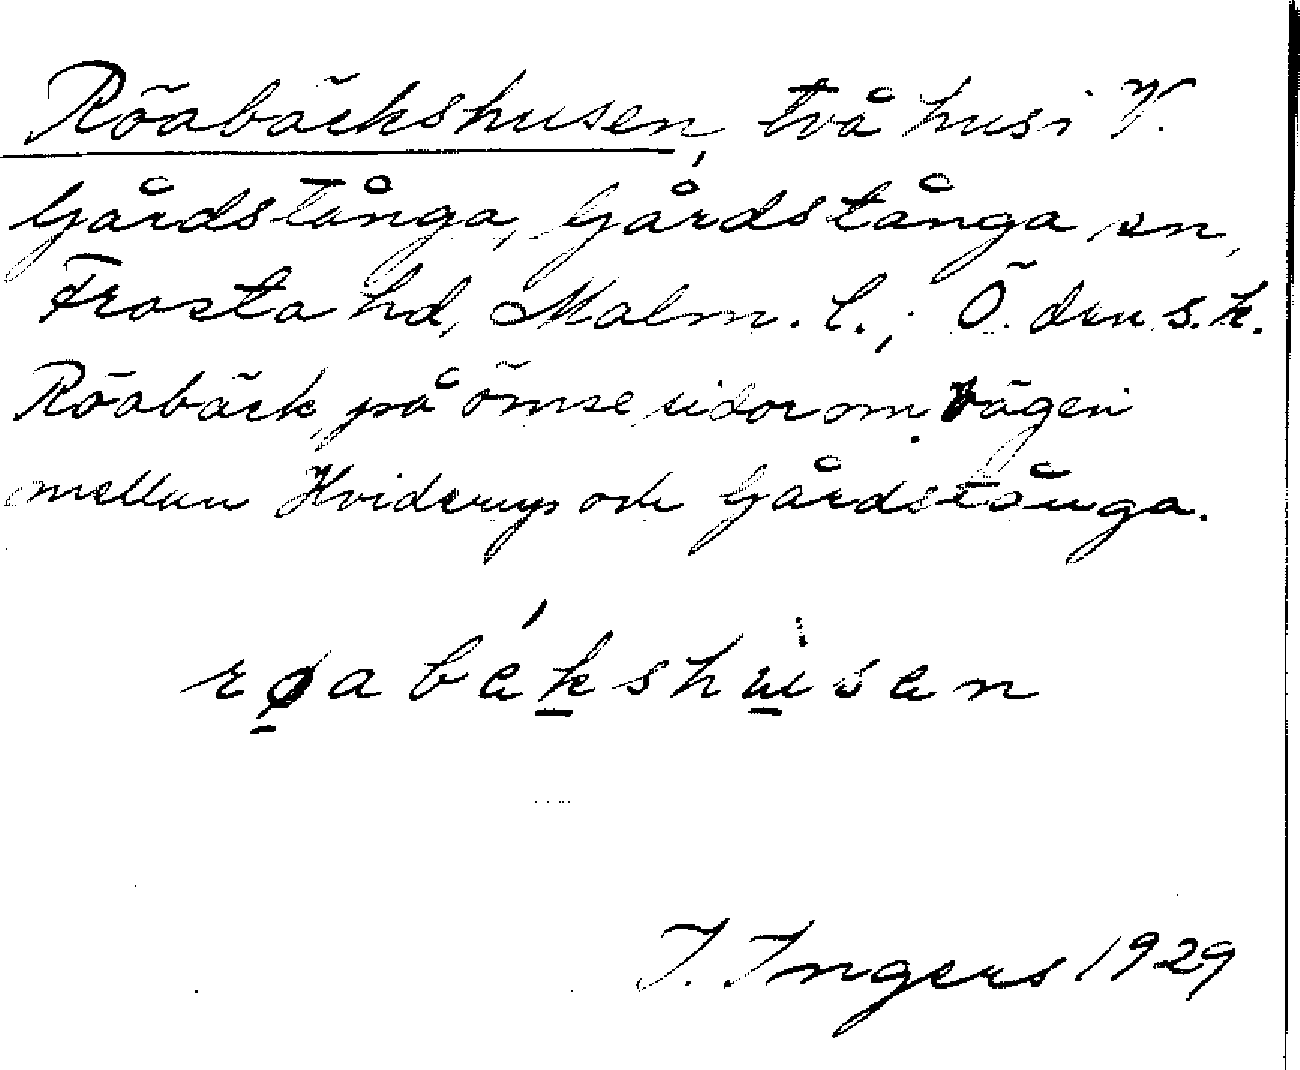 Röabäckshusen, två hus i V.
Gårdstånga, Gårdstånga sn,
Frosta hd, Malm. l.; Ö. den s.k.
Röabäck, på ömse sidor om vägen
mellan Hviderup och Gårdstånga.
røabækshusen
I. Ingers 1929